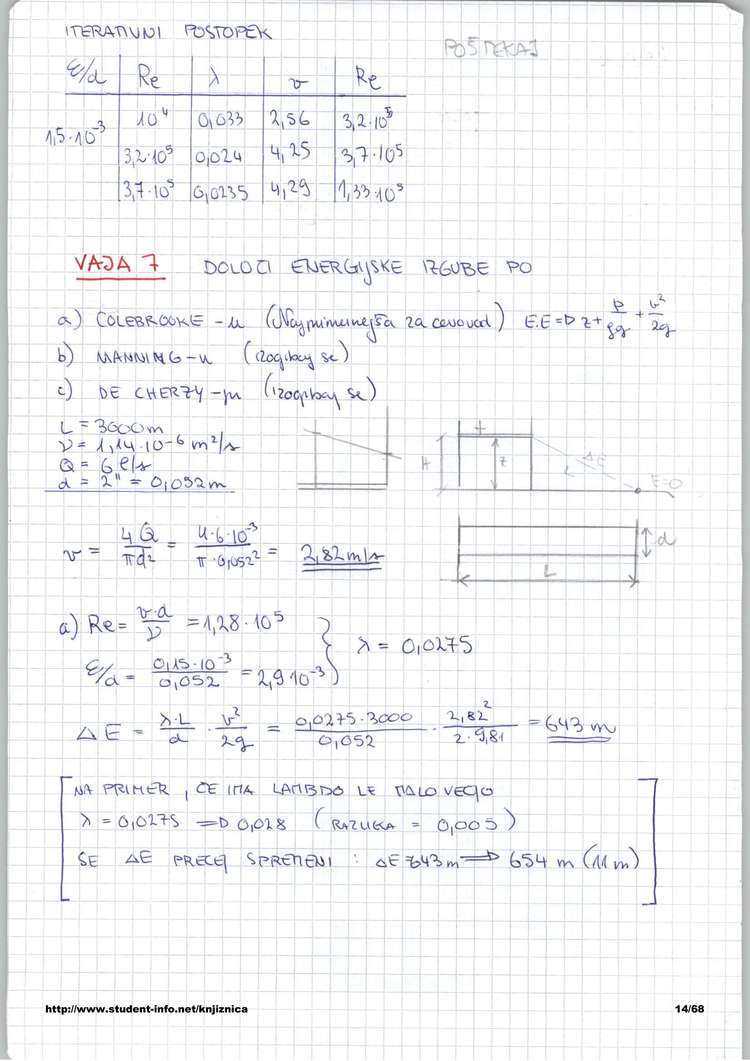 ITERATIVNI POSTOPEK
POŠTEKAJ
ε/d Re λ v Re
1,5·10⁻³ 10⁴ 0,033 2,56 3,2·10⁵
3,2·10⁵ 0,024 4,25 3,7·10⁵
3,7·10⁵ 0,0235 4,29 1,33·10⁵
VAJA 7 DOLOČI ENERGIJSKE IZGUBE PO
a) COLEBROOKE-u (Najprimernejša za cevovod) E.E => z + p/ρg + v²/2g
b) MANNING-u (izogibaj se)
c) DE CHERZY-ju (izogibaj se)
L = 3000m
ν = 1,14·10⁻⁶ m²/s
Q = 6 l/s
d = 2" = 0,052m
H z ΔE E=0
v = 4Q/πd² = 4·6·10⁻³/π·0,052² = 2,82 m/s
d
L
a) Re = v·d/ν = 1,28·10⁵
λ = 0,0275
ε/d = 0,15·10⁻³/0,052 = 2,9·10⁻³
ΔE = λ·L/d · v²/2g = 0,0275·3000/0,052 · 2,82²/2·9,81 = 643 m
NA PRIMER, ČE IMA LAMBDO LE MALO VEČJO
λ = 0,0275 => 0,028 (RAZLIKA = 0,005)
SE ΔE PRECEJ SPREMENI : ΔE 643m => 654 m (11m)
http://www.student-info.net/knjiznica 14/68